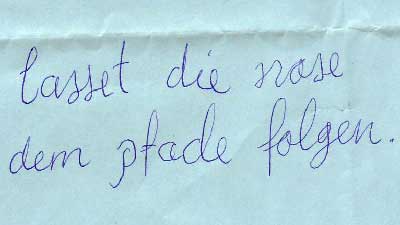 lasset die nase
dem pfade folgen.